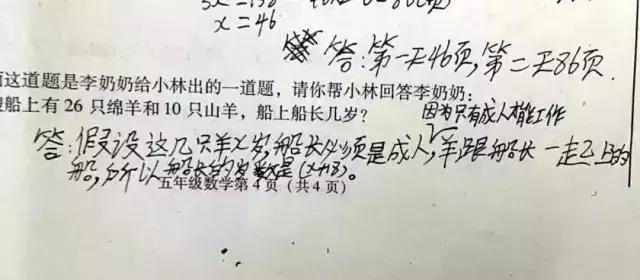 x=46
答:第一天46页,第二天86页.
面这道题是李奶奶给小林出的一道题,请你帮小林回答李奶奶:
船上有26只绵羊和10只山羊,船上船长几岁?
因为只有成人才能工作
答:假设这几只羊x岁,船长必须是成人,羊跟船长一走上的
船,所以船长的岁数是(x+18)。
五年级数学第4页(共4页)